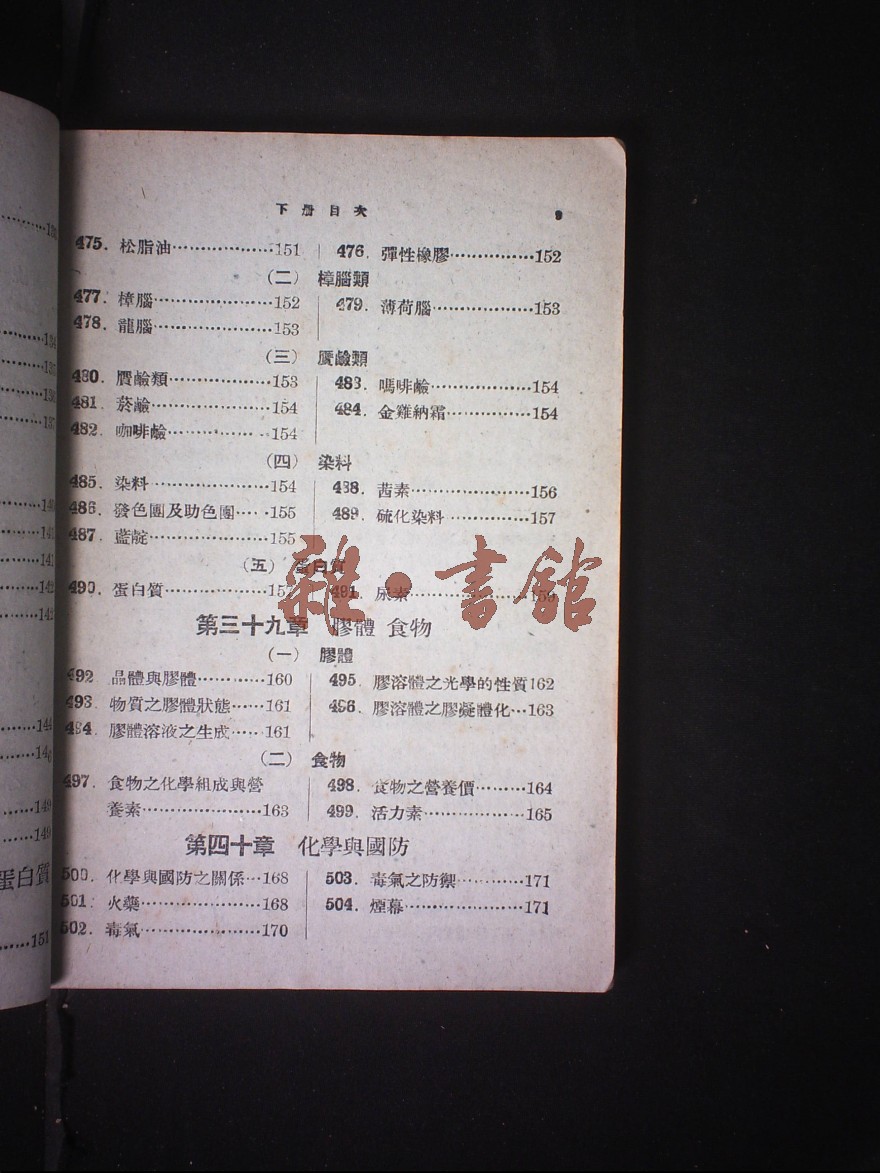 下册目次 9
475. 松脂油………………151
476. 彈性橡膠……………152
(二) 樟腦類
477. 樟腦…………………152
478. 龍腦…………………153
479. 薄荷腦………………153
(三) 贋鹼類
480. 贋鹼類………………153
481. 菸鹼…………………154
482. 咖啡鹼………………154
483. 嗎啡鹼………………154
484. 金雞納霜……………154
(四) 染料
485. 染料…………………154
486. 發色團及助色團……155
487. 藍靛…………………155
488. 茜素…………………156
489. 硫化染料……………157
(五) 蛋白質
490. 蛋白質………………157
491. 尿素…………………159
第三十九章 膠體 食物
(一) 膠體
492 晶體與膠體…………160
493. 物質之膠體狀態……161
494. 膠體溶液之生成……161
495. 膠溶體之光學的性質162
496. 膠溶體之膠凝體化…163
(二) 食物
497. 食物之化學組成與營
養素……………………163
498. 食物之營養價………164
499. 活力素………………165
第四十章 化學與國防
500. 化學與國防之關係…168
501. 火藥…………………168
502. 毒氣…………………170
503. 毒氣之防禦…………171
504. 煙幕…………………171
雜·書館